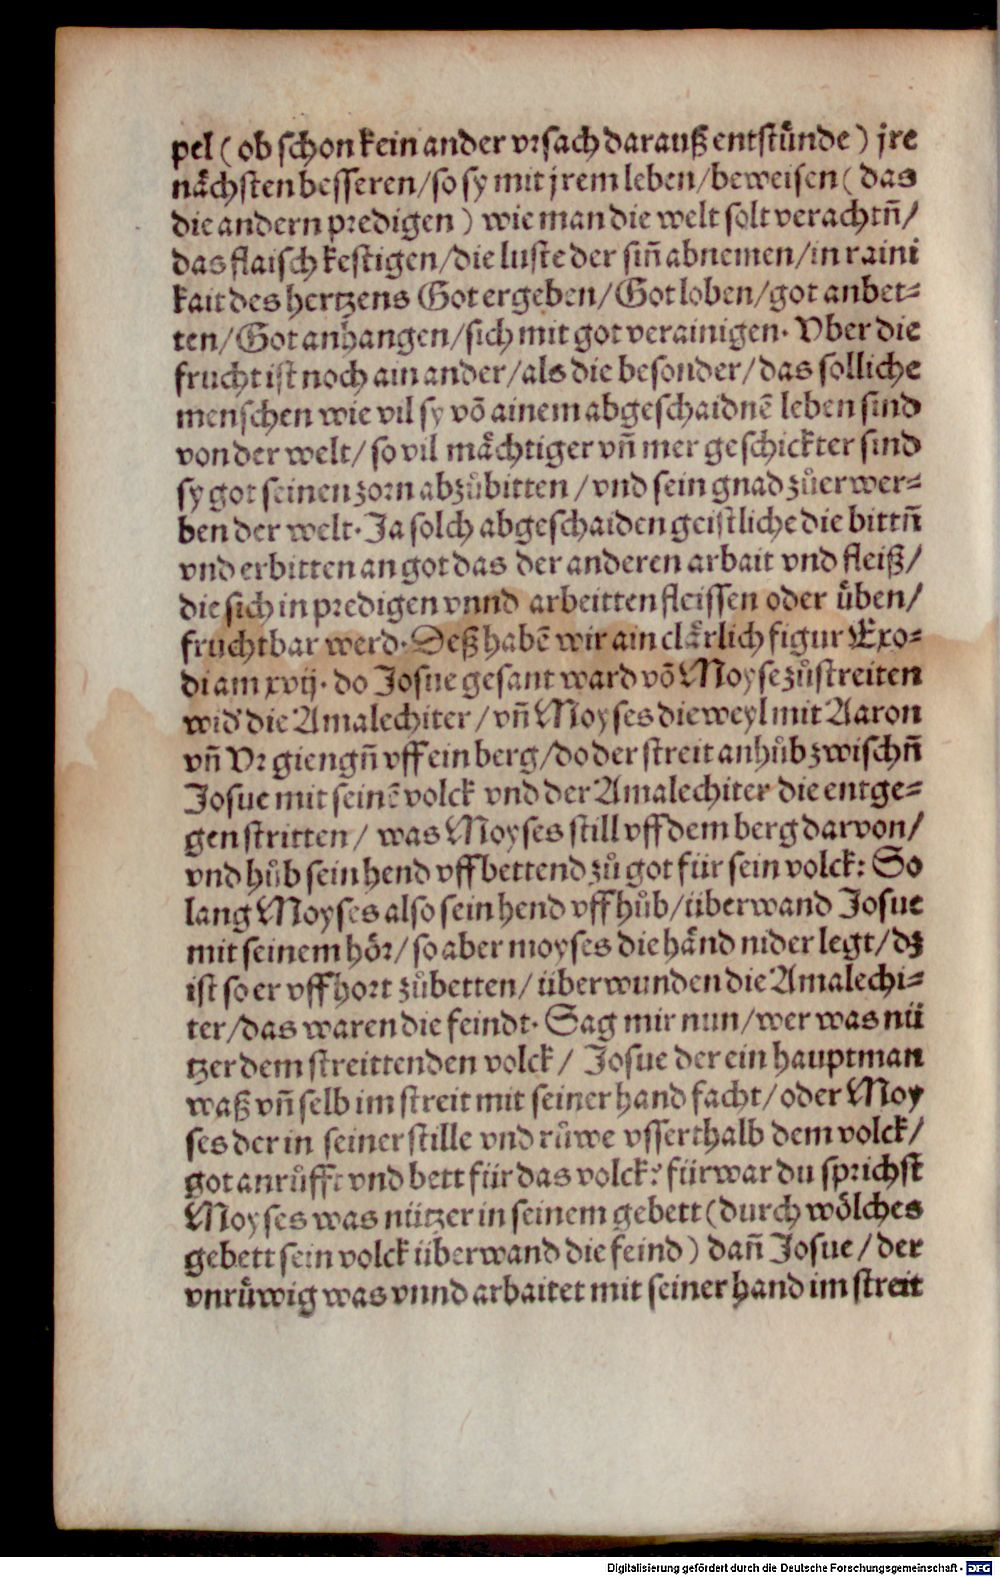 pel ( ob schon kein ander vrsach darauß entstünde ) jre
nächsten besseren / so sy mit jrem leben / beweisen ( das
die andern predigen ) wie man die welt solt verachtn̄ /
das flaisch kestigen / die luste der sin̄ abnemen / in raini
kait des hertzens Got ergeben / Got loben / got anbet⸗
ten / Got anhangen / sich mit got verainigen. Vber die
frucht ist noch ain ander / als die besonder / das solliche
menschen wie vil sy vō ainem abgeschaidnē leben sind
von der welt / so vil mächtiger vn̄ mer geschickter sind
sy got seinen zorn abzůbitten / vnd sein gnad zůerwer⸗
ben der welt. Ja solch abgeschaiden geistliche die bittn̄
vnd erbitten an got das der anderen arbait vnd fleiß /
die sich in predigen vnnd arbeitten fleissen oder üben /
fruchtbar werd. Deß habē wir ain clärlich figur Exo⸗
di am xvij. do Josue gesant ward vō Moyse zůstreiten
wid' die Amalechiter / vn̄ Moyses die weyl mit Aaron
vn̄ Vr giengn̄ vff ein berg / do der streit anhůb zwischn̄
Josue mit seinē volck vnd der Amalechiter die entge⸗
gen stritten / was Moyses still vff dem berg darvon /
vnd hůb sein hend vff bettend zů got für sein volck: So
lang Moyses also sein hend vff hůb / überwand Josue
mit seinem hör / so aber moyses die händ nider legt / dz
ist so er vff hort zůbetten / überwunden die Amalechi⸗
ter / das waren die feindt. Sag mir nun / wer was nü
tzer dem streittenden volck / Josue der ein hauptman
waß vn̄ selb im streit mit seiner hand facht / oder Moy
ses der in seiner stille vnd růwe vsserthalb dem volck /
got anrůfft vnd bett für das volck? fürwar du sprichst
Moyses was nützer in seinem gebett ( durch wölches
gebett sein volck überwand die feind ) dan̄ Josue / der
vnrüwig was vnnd arbaitet mit seiner hand im streit
Digitalisierung gefördert durch die Deutsche Forschungsgemeinschaft - DFG